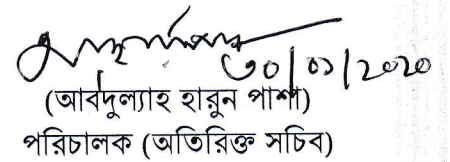 ৩০/০১/২০২০
(আবদুল্যাহ হারুন পাশা)
পরিচালক (অতিরিক্ত সচিব)